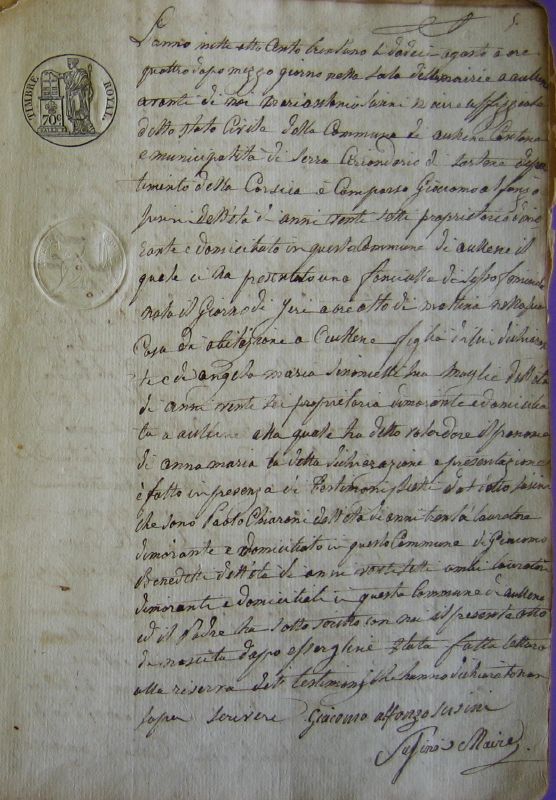 TIMBRE ROYAL.
70c
L'anno mille otto cento trentuno li dodeci agosto a ore
quattro dopo mezzo giorno nella Sala della mairie a aullene
avanti di noi Mariantonio Susini maire uffiziale
dello Stato Civile della Commune di aullene Cantone
e municipalità di Serra Circondario di Sartena Dipar
timento della Corsica è Comparso Giacomo alfonso
Susini dell'età di anni vente sette proprietario dimo
rante e domicitato in questa Commune di aullene il
quale ci ha presentato una fanciulla di sesso feminino
nata il Giorno di Jeri a ore otto di mattina nella sua
Casa di abitazione a aullene figlia di lui dichiaran
te e di angela maria Simonetti sua moglie dell'età
di anni vente sei proprietaria dimorante e domicilia
ta a aullene alla quale ha detto volerdore il prenome
di anna maria la detta dichiarazione e presentazione
è fatta in presenza di Testimonj detto Susini
che sono Paolo Chiaroni dell'età di anni trenta lavoratore
dimorante e domicitiato in questa Commune di Giacomo
Benedetti dell'età di anni vente sette ambi lavoratori
dimoranti e domicitiati in questa Commune di aullene
ed il Padre ha sotto scritto con noi il presente atto
di nascita dopo essergline stata fatta lettura
alla riserva dei testimonj che hanno dichiarato non
saper scrivere Giacomo alfonzo susini
Susini Maire